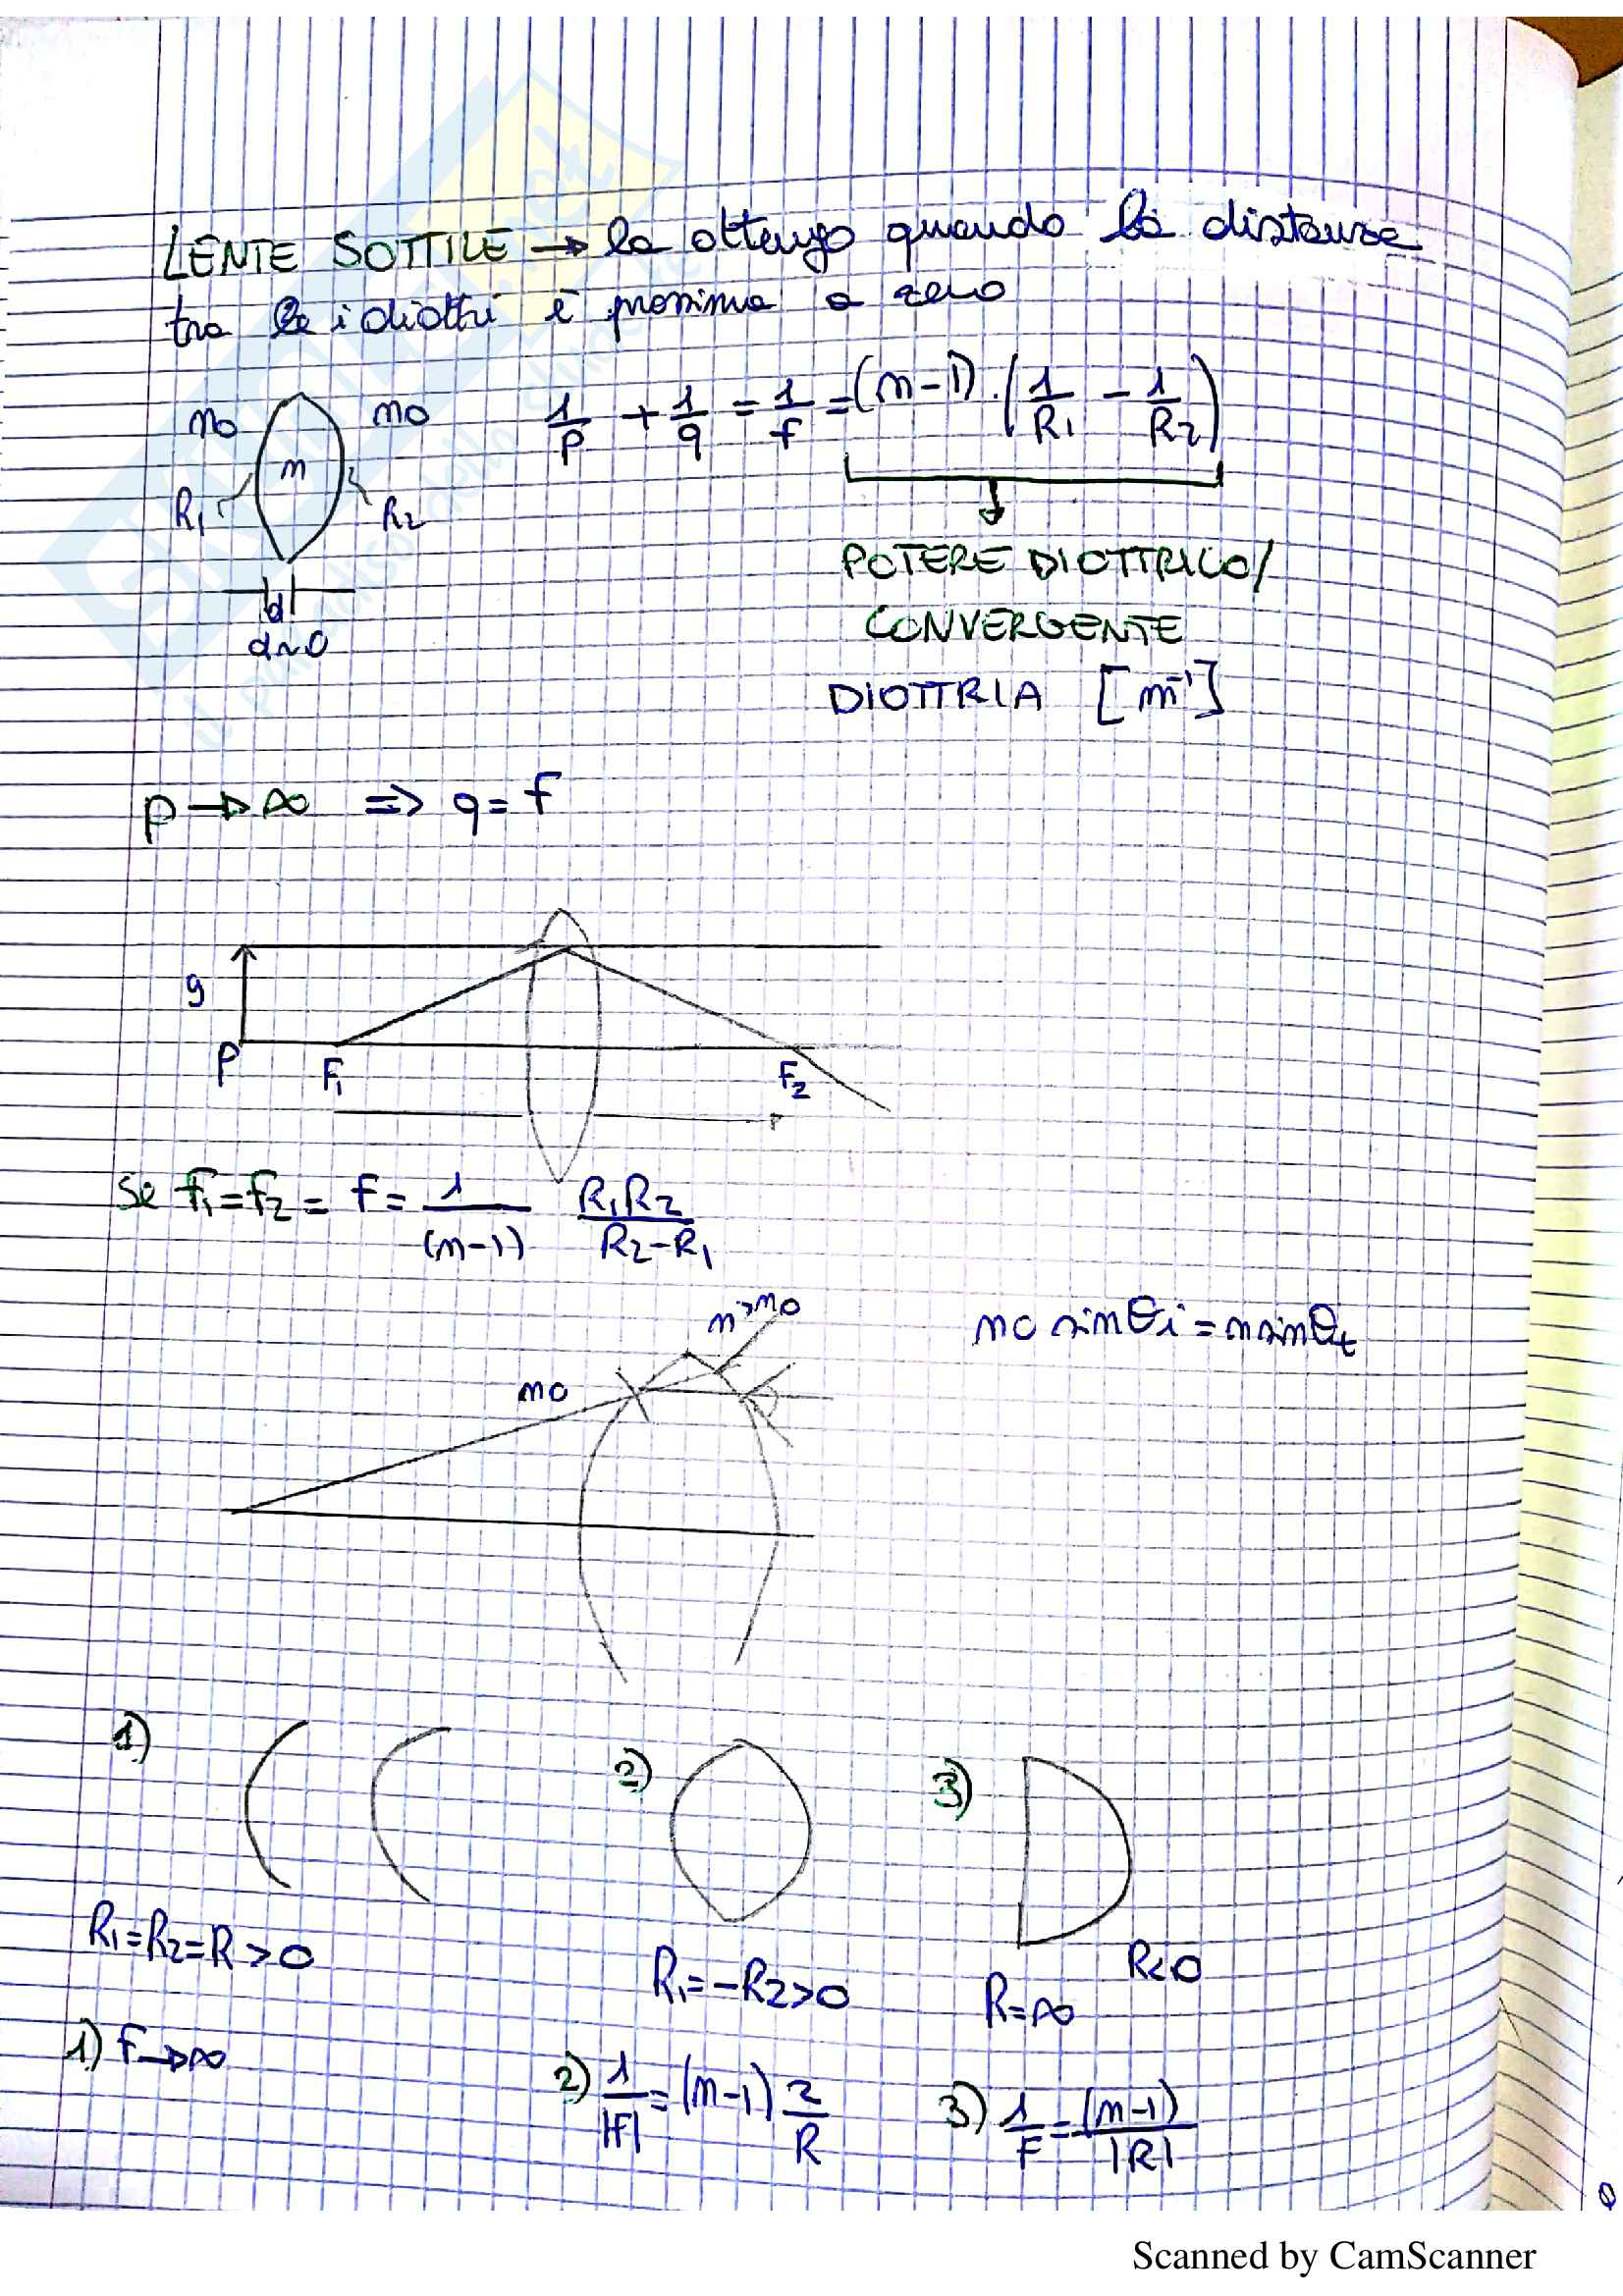 LENTE SOTTILE → la ottengo quando la distanza
tra le i diottri è prossima a zero
n0 n0
n
R1 R2
d
d~0
1/p + 1/q = 1/f = (n-1) · (1/R1 - 1/R2)
POTERE DIOTTRICO/
CONVERGENTE
DIOTTRIA [m⁻¹]
p → ∞ => q = f
y
P F1 F2
Se f1 = f2 = f = 1/(n-1) R1R2/(R2-R1)
n>n0
n0
n0 sinθi = n sinθt
1) 2) 3)
R1=R2=R>0
R1=-R2>0
R=∞ R<0
1) f→∞
2) 1/|f| = (n-1) 2/R
3) 1/f = (n-1)/|R|
Scanned by CamScanner